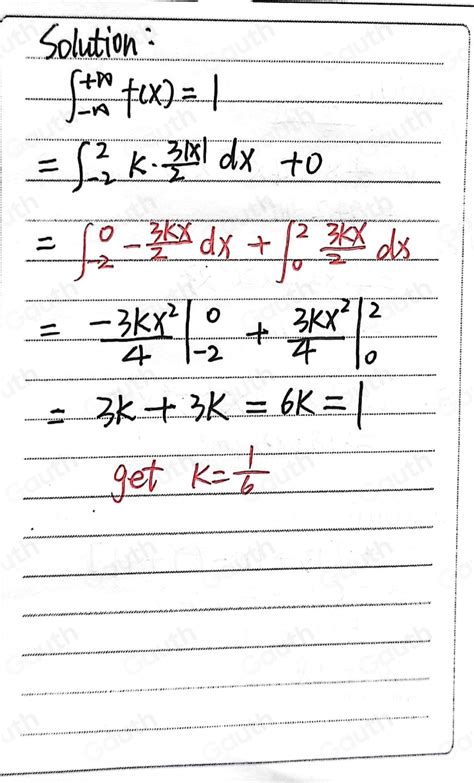 Solution:
∫_{-∞}^{+∞} f(x) = 1
= ∫_{-2}^{2} k · 3|x|/2 dx + 0
= ∫_{-2}^{0} - 3kx/2 dx + ∫_{0}^{2} 3kx/2 dx
= -3kx²/4 |_{-2}^{0} + 3kx²/4 |_{0}^{2}
= 3k + 3k = 6k = 1
get k = 1/6